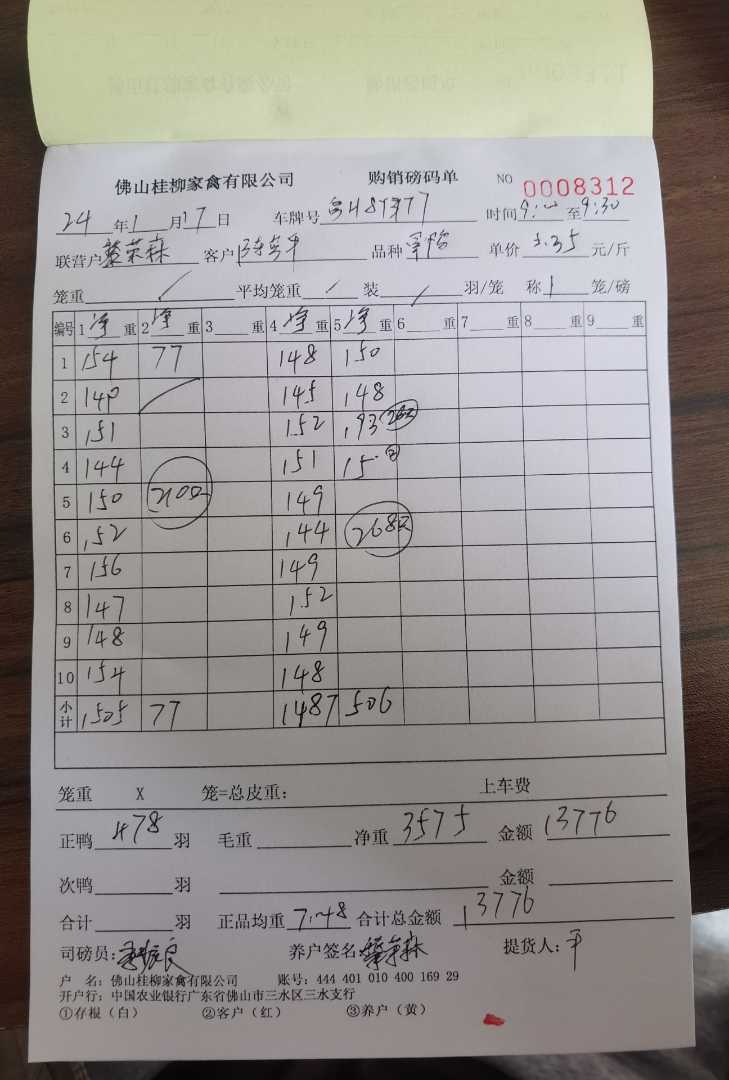 佛山桂柳家禽有限公司 购销磅码单 NO 0008312
24年1月17日 车牌号 时间9:00至9:30
联营户 黎荣森 客户 品种 单价 3.85 元/斤
笼重 / 平均笼重 / 装 / 羽/笼 称 1 笼/磅
编号 1 净 重 2 净 重 3 重 4 净 重 5 净 重 6 重 7 重 8 重 9 重
1 154 77 148 150
2 149 145 148
3 151 152
4 144 151
5 150 149
6 152 144
7 156 149
8 147 152
9 148 149
10 154 148
小计 1505 77 1487 506
笼重 X 笼=总皮重: 上车费
正鸭 478 羽 毛重 净重 3575 金额 13776
次鸭 羽 金额
合计 羽 正品均重 7.48 合计总金额 13776
司磅员: 养户签名: 黎荣森 提货人: 平
户 名:佛山桂柳家禽有限公司 账号:444 401 010 400 169 29
开户行:中国农业银行广东省佛山市三水区三水支行
①存根(白) ②客户(红) ③养户(黄)